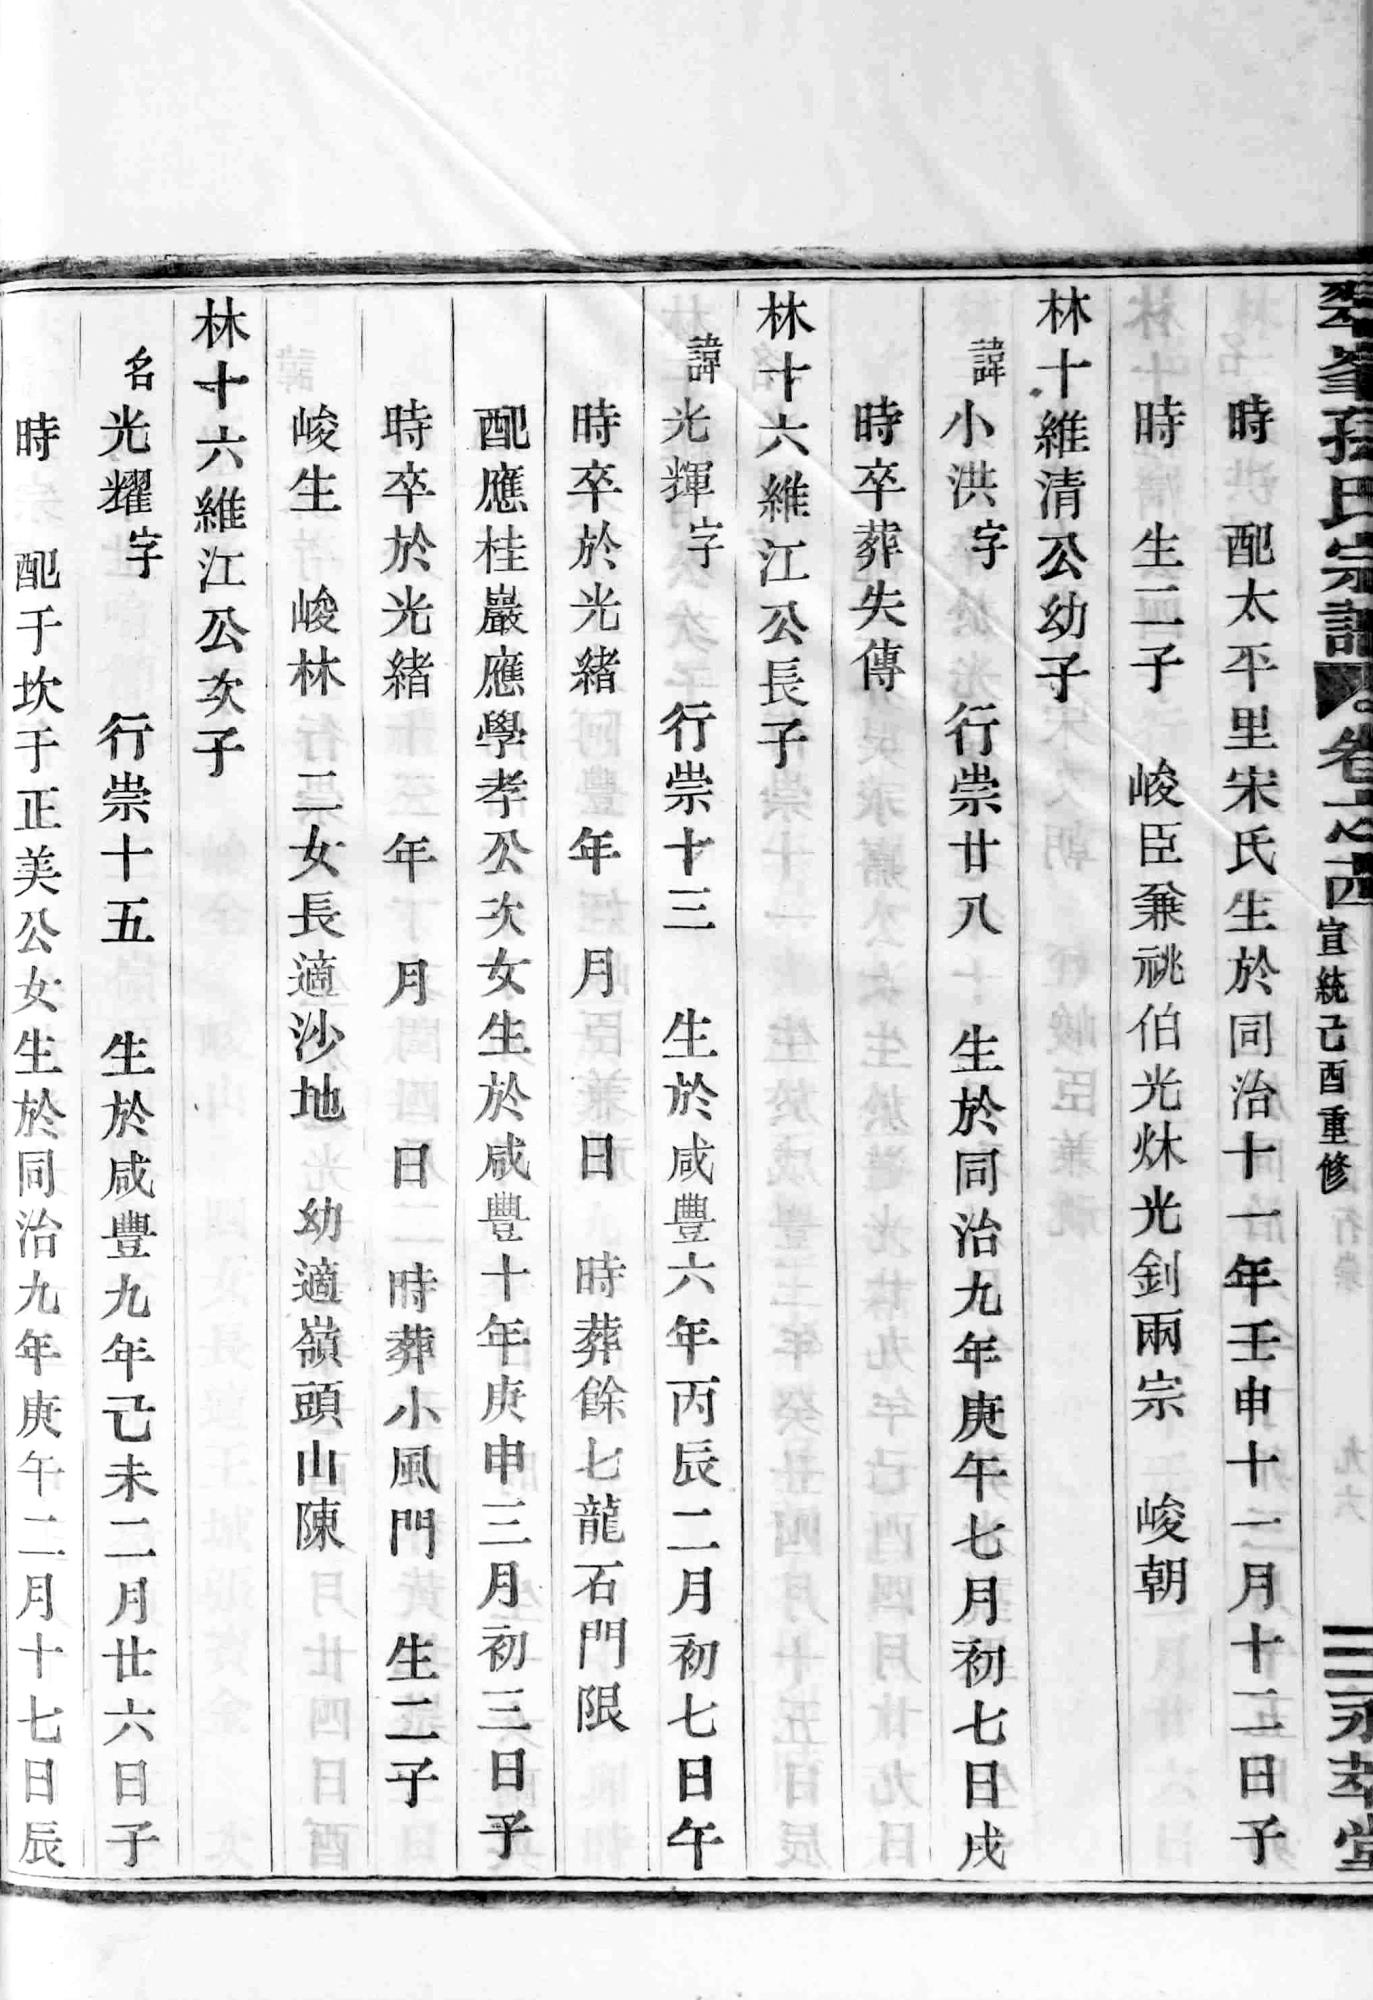 翠峯孫氏宗譜 卷之四 宣統己酉重修 永萃堂
時 配太平里宋氏生於同治十一年壬申十二月十二日子
時 生二子 峻臣兼祧伯光炑光釗兩宗 峻朝
林十維清公幼子
諱小洪字 行崇廿八 生於同治九年庚午七月初七日戌
時卒葬失傳
林十六維江公長子
諱光輝字 行崇十三 生於咸豐六年丙辰二月初七日午
時卒於光緒 年 月 日 時葬餘七龍石門限
配應桂巖應學孝公次女生於咸豐十年庚申三月初三日子
時卒於光緒 年 月 日 時葬小風門 生二子
峻生 峻林 二女長適沙地 幼適嶺頭山陳
林十六維江公次子
名光耀字 行崇十五 生於咸豐九年己未二月廿六日子
時 配于坎于正美公女生於同治九年庚午二月十七日辰